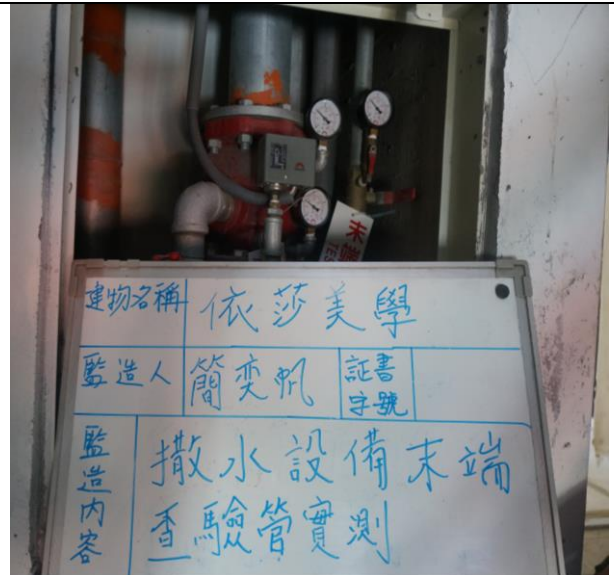 末端
TES
建物名稱 依莎美學
監造人 簡奕帆 証書字號
監造內容 撒水設備末端
查驗管實測